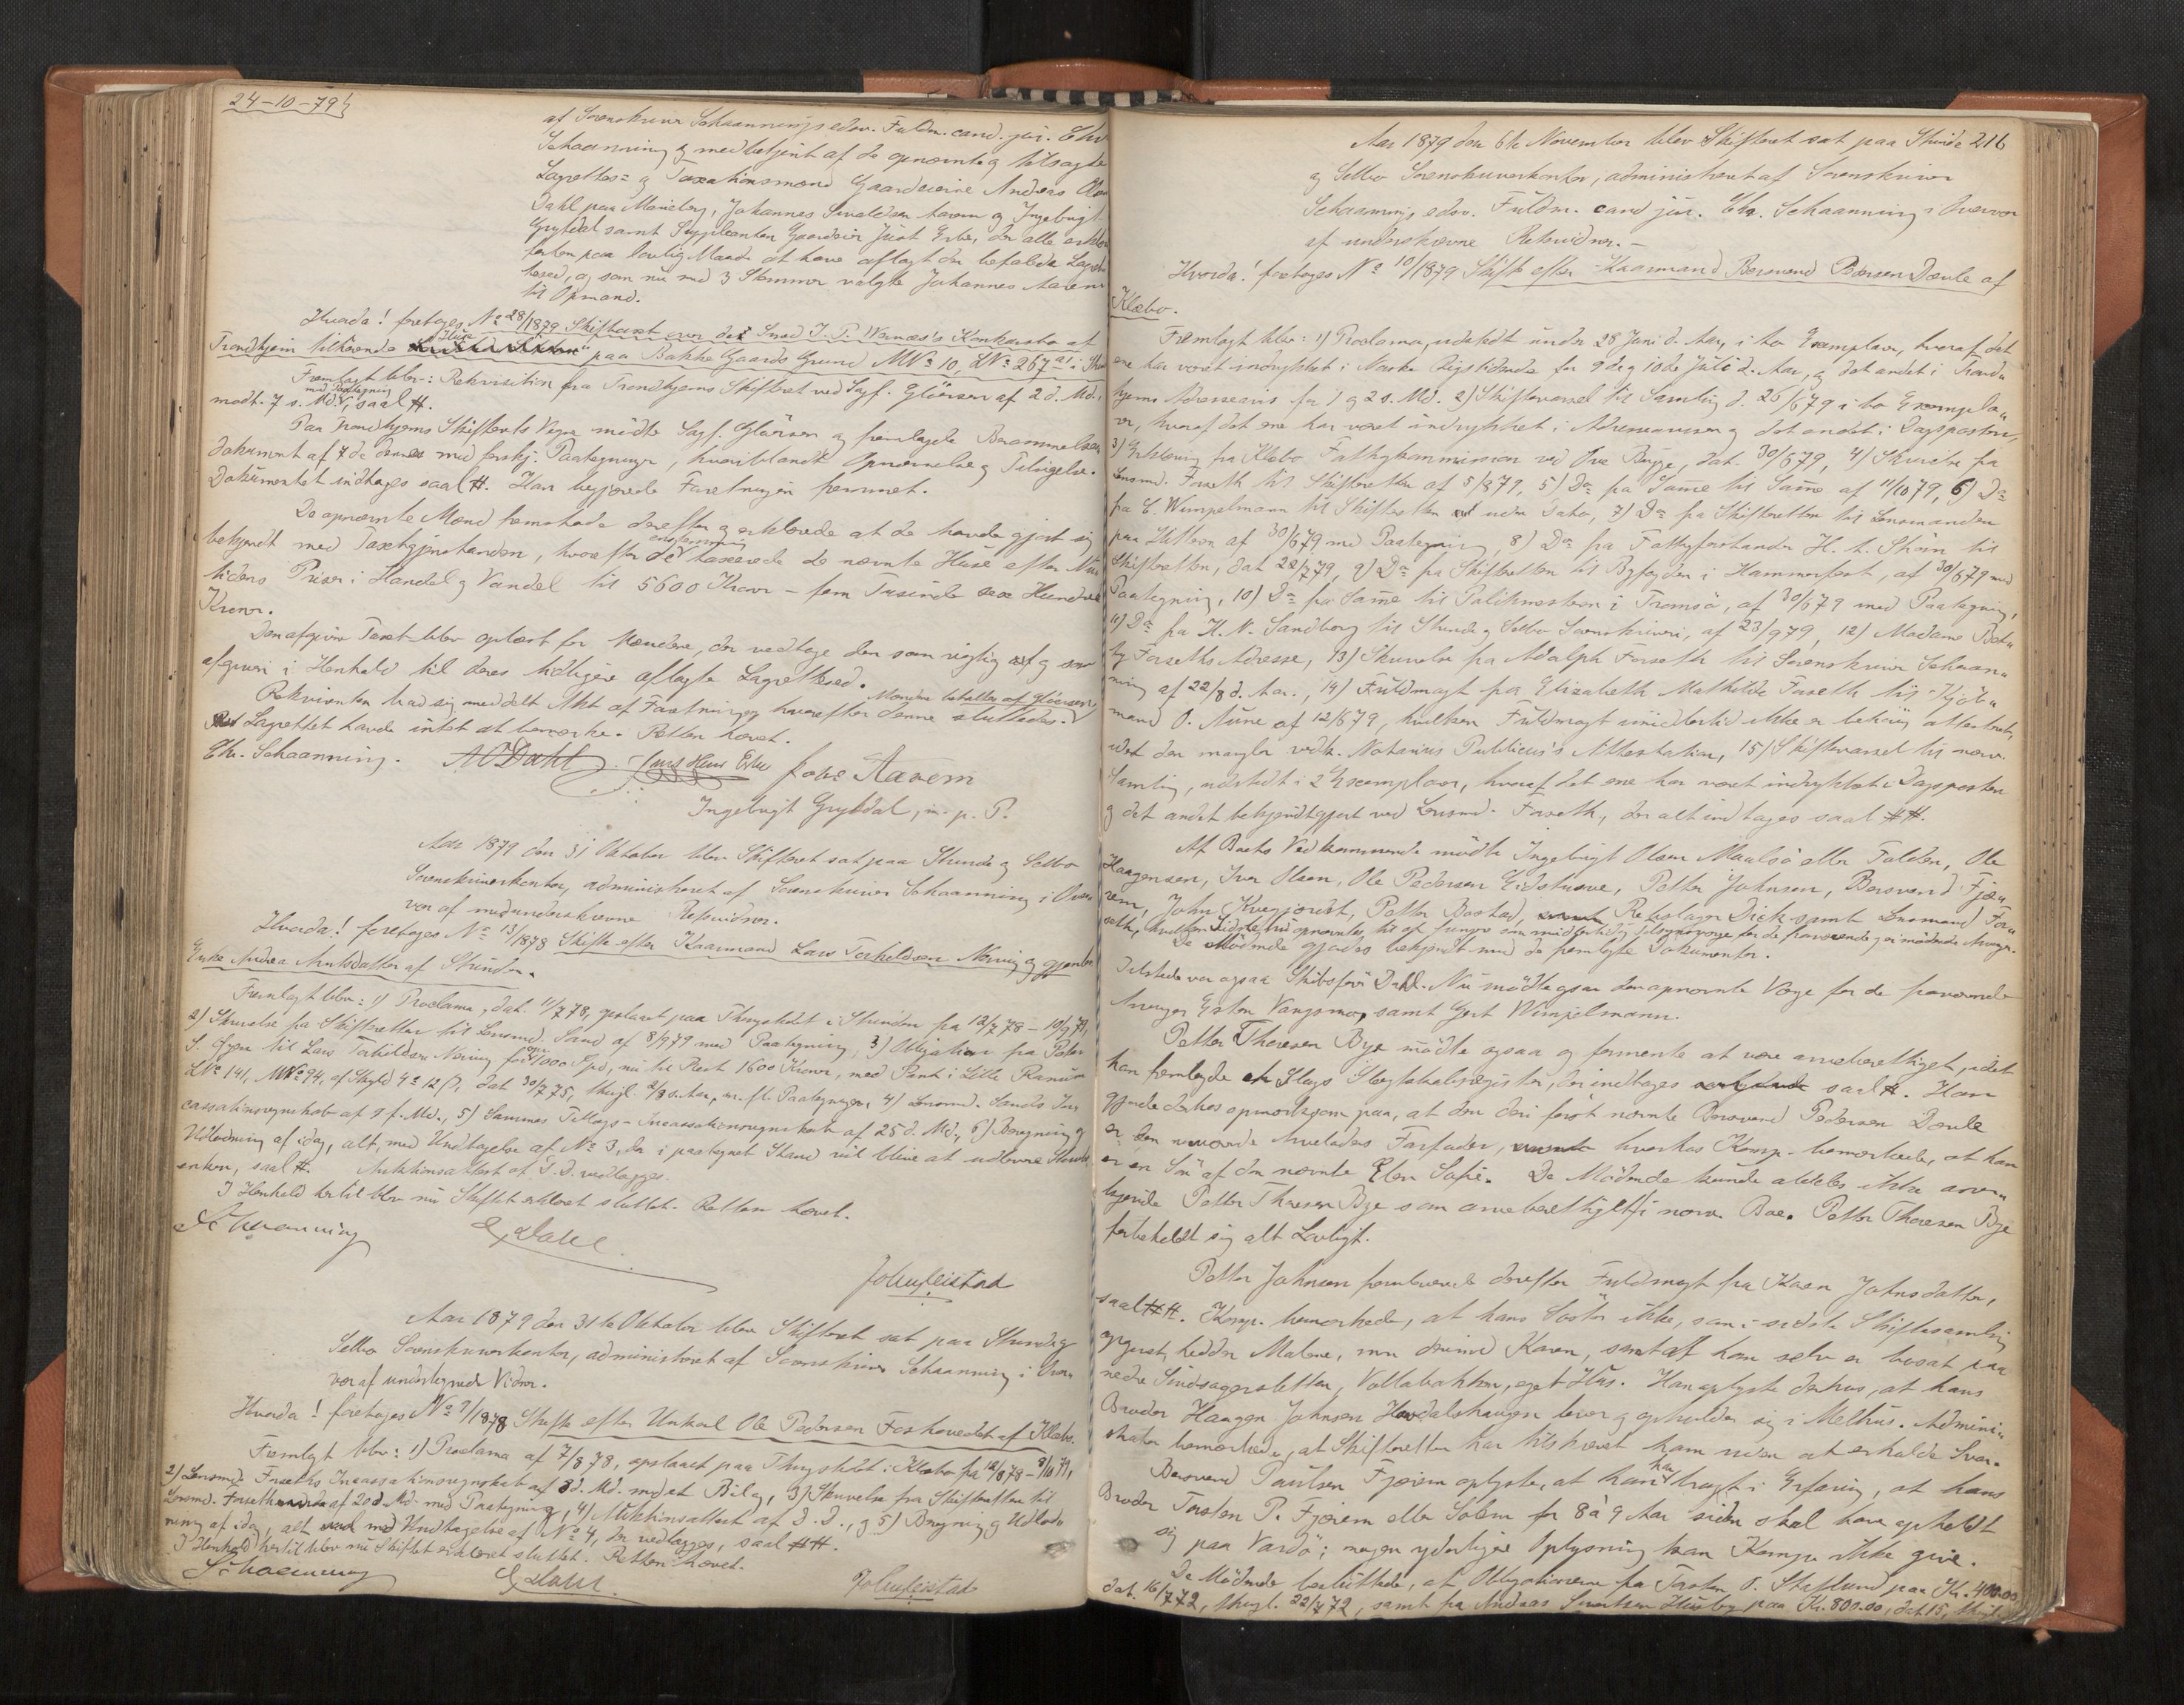 24-10-79
af Sorenskriver Schaannings edsv. Fuldm. cand. jur. Chr.
Schaanning og medbetjent af de opnævnte og tilsagte
Lagrettes= og Taxationsmænd Gaardeierne Anders
Dahl paa Marieborg, Johannes Sivaldsen Aarem og Ingebrigt
Grytdal samt Suppleanten Gaardeier Just Erbe, der alle erklærer
paa lovlig Maade at have aflagt den befalede Lagrettesed, og som nu med 3 Stemmer valgte Johannes Aarem
til Opmand.
Hvorda! foretoges No 28/1879 Skiftetaxt over det Smed I. P. Wærnæs's Konkursbo af
Trondhjem tilhørende Huse paa Bakke Gaards Grund MNo 10, LNo 267
Fremlagt blev: Rekvisition fra Trondhjems Skifteret ved Sagf. Gløersen af 2 d. Md.,
modt. 7 s. Md. med Paategning, saal #.
Paa Trondhjems Skifterets Vegne mødte Sagf. Gløersen og fremlagde Berammelses-
dokument af 7de dennes med forskj. Paategninger, hvoriblandt Opnævnelse og Tilsigelse.
Dokumentet indtages saal #. Han begjærede Forretningen fremmet.
De opnævnte Mænd fremstode derefter og erklærede at de havde gjort sig
bekjendt med Taxtgjenstanden, hvorefter de enstemmig taxerede de nævnte Huse efter Nu-
tidens Priser i Handel og Vandel til 5600 Kroner - fem Tusinde sex Hundrede
Kroner.
Den afgivne Taxt blev oplæst for Mændene, der vedtoge den som rigtig og som
afgiven i Henhold til deres tidligere aflagte Lagrettesed.
Rekvirenten bad sig meddelt Akt af Forretningen, hvorefter denne sluttedes. Mændene betaltes af Gløersen.
Lagrettet havde intet at bemærke. Retten hævet.
Chr. Schaanning. AODahl Just Hans Erbe Johs Aarem
Ingebrigt Grytdal, m. p. P.
Aar 1879 den 31 Oktober blev Skifteret sat paa Strinde og Selbo
Sorenskriverkontor, administreret af Sorenskriver Schaanning i Over-
vær af medunderskrevne Retsvidner.
Hvorda! foretoges No 13/1878 Skifte efter Kaarmand Lars Torkeldsen Nervig og gjenlev.
Enke Andrea Arntsdatter af Strinden.
Fremlagt blev: 1) Proclama, dat. 11/7 78, opslaaet paa Thingstedet i Strinden fra 12/7 78 - 10/9 79,
2) Skrivelse fra Skifteretten til Lensmd. Sand af 8/9 79 med Paategning, 3) Obligation fra Peter
S. Øyen til Lars Torkeldsen Nervig for opr 1000 Spd, nu til Rest 1600 Kroner, med Pant i Lille Ranum
LNo 141, MNo 94, af Skyld 4 12 β, dat 30/7 75, thingl. 2/8 s. Aar, m. fl. Paategninger, 4) Lensmd. Sands In-
cassationsregnskab af 9 f. Md., 5) Sammes Tillægs-Incassationsregnskab af 25 d. Md., 6) Beregning og
Udlodning af idag, alt, med Undtagelse af No 3, der i paategnet Stand vil blive at udlevere
enken, saal #. Auktionsattest af D. D. vedlægges.
I Henhold hertil blev nu Skiftet erklæret sluttet. Retten hævet.
Schaanning EDahl.
John Leistad
Aar 1879 den 31te Oktober blev Skifteret sat paa Strinde og
Selbo Sorenskriverkontor, administreret af Sorenskriver Schaanning i Over-
vær af undertegnede Vidner.
Hvorda! foretoges No 7/1878 Skifte efter Unkarl Ole Pedersen Foshovedet af Klæbo.
Fremlagt blev: 1) Proclama af 7/8 78, opslaaet paa Thingstedet i Klæbo fra 12/8 78 - 8/10 79,
2) Lensmd. Forseths Incassationsregnskab af 8 d. Md. med et Bilag, 3) Skrivelse fra Skifteretten til
Lensmd. Forseth af 20 d. Md. med Paategning, 4) Auktionsattest af D. D., og 5) Beregning og Udlod-
ning af idag, alt med Undtagelse af No 4, der vedlægges, saal ##.
I Henhold hertil blev nu Skiftet erklæret sluttet. Retten hævet.
Schaanning EDahl. John Leistad
216
Aar 1879 den 6te November blev Skifteret sat paa Strinde
og Selbo Sorenskriverkontor, administreret af Sorenskriver
Schaannings edsv. Fuldm. cand jur. Chr. Schaanning i Overvær
af underskrevne Retsvidner.-
Hvorda! foretoges No 10/1879 Skifte efter Kaarmand Berovend Pedersen Daule af
Klæbo.
Fremlagt blev: 1) Proclama, udstedt under 28 Juni d. Aar, i to Exemplarer, hvoraf det
ene har været indrykket i Norske Rigstidende for 9de og 10de Juli d. Aar, og det andet i Trond-
hjems Adresseavis for 1 og 2 s. Md. 2) Skiftevarsel til Samling d. 26/6 79 i to Exempla-
rer, hvoraf det ene har været indrykket i Adresseavisen og det andet i Dagsposten,
3) Erklæring fra Klæbo Fattigkommission ved Ove Bugge, dat. 30/6 79, 4) Skrivelse fra
Lensmd. Forseth til Skifteretten af 5/8 79, 5) Do fra Samme til Samme af 11/10 79, 6) Do
fra C. Wimpelmann til Skifteretten uden Dato, 7) Do fra Skifteretten til Lensmanden
paa Hitteren af 30/6 79 med Paategning, 8) Do fra Fattigforstander H. A. Strøm til
Skifteretten, dat 22/7 79, 9) Do fra Skifteretten til Byfogden i Hammerfest, af 30/6 79 med
Paategning, 10) Do fra Samme til Politimesteren i Tromsø, af 30/6 79 med Paategning,
11) Do fra H. N. Sandborg til Strinde og Selbo Sorenskriveri, af 23/9 79, 12) Madame
Forseths Adresse, 13) Skrivelse fra Adolph Forseth til Sorenskriver Schaan-
ning af 22/8 d. Aar., 14) Fuldmagt fra Elizabeth Mathilde Forseth til Kjøb-
mand O. Aune af 12/6 79, hvilken Fuldmagt imidlertid ikke er behørig attesteret,
idet den mangler vedk. Notarius Publicus's Attestation, 15) Skiftevarsel til nærv.
Samling, udstedt i 2 Exemplarer, hvoraf det ene har været indrykket i Dagsposten
og det andet bekjendtgjort ved Lensmd. Forseth, der alt indtages saal ##.
Af Boets Vedkommende mødte Ingebrigt Olsen Maulsø eller Folden, Ole
Haagensen, Iver Olsen, Ole Pedersen Eidstuve, Petter Johnsen, Berovend Fjæ-
rem, John Kregjordet, Petter Bostad, Rebslager Dick samt Lensmand For-
seth, hvilken Sidste blev opnævnt til at fungere som midlertidig Tilsynsværge for de fraværende og ei mødende Arvinger.
De Mødende gjordes bekjendt med de fremlagte Dokumenter.
Tilstede var ogsaa Skibsfører Dahl. Nu mødte ogsaa den opnævnte Værge for de fraværende
Arvinger Esten Vangsmo, samt Gert Wimpelmann.
Petter Thoresen Bye mødte ogsaa og formente at være arveberettiget, idet
han fremlagde et Slags Slægtskabsregister, der indtages saal #. Han
gjorde derhos opmærksom paa, at den deri først nævnte Berovend Pedersen Daule
er den nuværende Arveladers Farfader, hvorhos Komp. bemærkede, at han
er en Søn af den nævnte Elen Sofie. De Mødende kunde aldeles ikke aner-
kjende Petter Thoresen Bye som arveberettiget i nærv. Bo. Petter Thoresen Bye
forbeholdt sig alt Lovligt.
Petter Johnsen fremleverede derefter Fuldmagt fra Karen Johnsdatter,
saal ##. Komp. bemærkede, at hans Søster ikke, som i sidste Skiftesamling
opgivet, hedder Malene, men derimod Karen, samt at hun selv er bosat paa
nedre Sindsagersletten, Vollabakken, eget Hus. Han oplyste derhos, at hans
Broder Haagen Johnsen Hovdalshaugen lever og opholder sig i Melhus. Admini-
strator bemærkede, at Skifteretten har tilskrevet ham uden at erholde Svar.
Berovend Paulsen Fjærem oplyste, at han har bragt i Erfaring, at hans
Broder Torsten P. Fjærem eller Solem for 8 à 9 Aar siden skal have opholdt
sig paa Vardø; nogen yderligere Oplysning kan Komp. ikke give.
De Mødende besluttede, at Obligationerne fra Torsten O. Stoflund paa Kr. 400.00,
dat. 16/7 72, thingl. 22/7 72, samt fra Andreas Sivertsen Huseby paa Kr. 800.00, dat. 15,